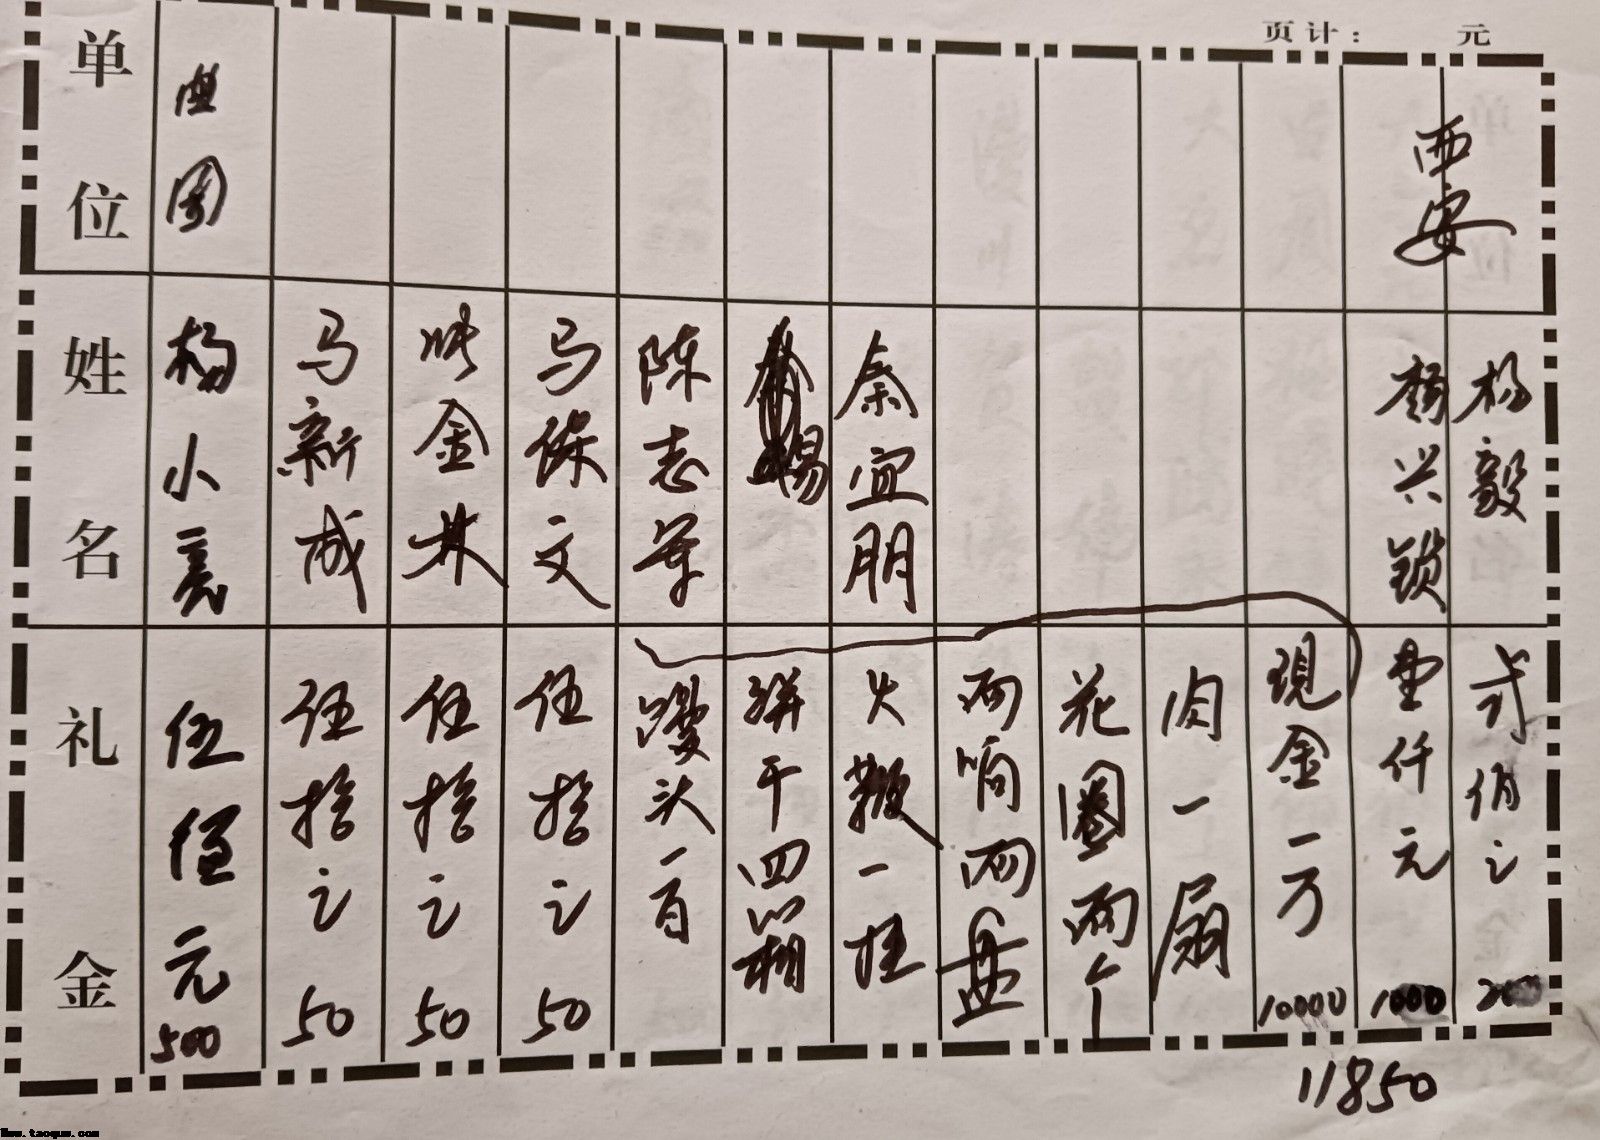 页计： 元
单位
姓名
礼金
杨小亮
伍佰元
500
马新成
伍拾元
50
金林
伍拾元
50
马保文
伍拾元
50
陈志军
馍头一百
饼干四箱
秦宜朋
火鞭一挂
两响两盘
花圈两个
肉一扇
现金一万
10000
西安
杨兴锁
壹仟元
1000
杨毅
弍佰元
200
11850
Www.taoquw.com